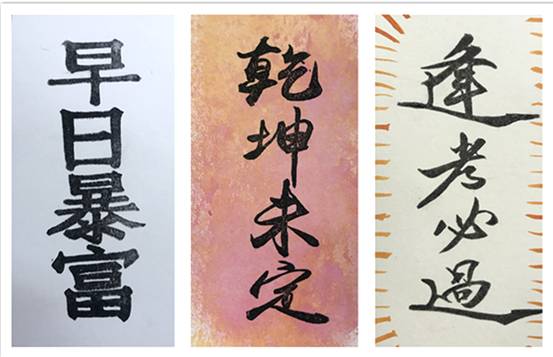 早日暴富
乾坤未定
逢考必過